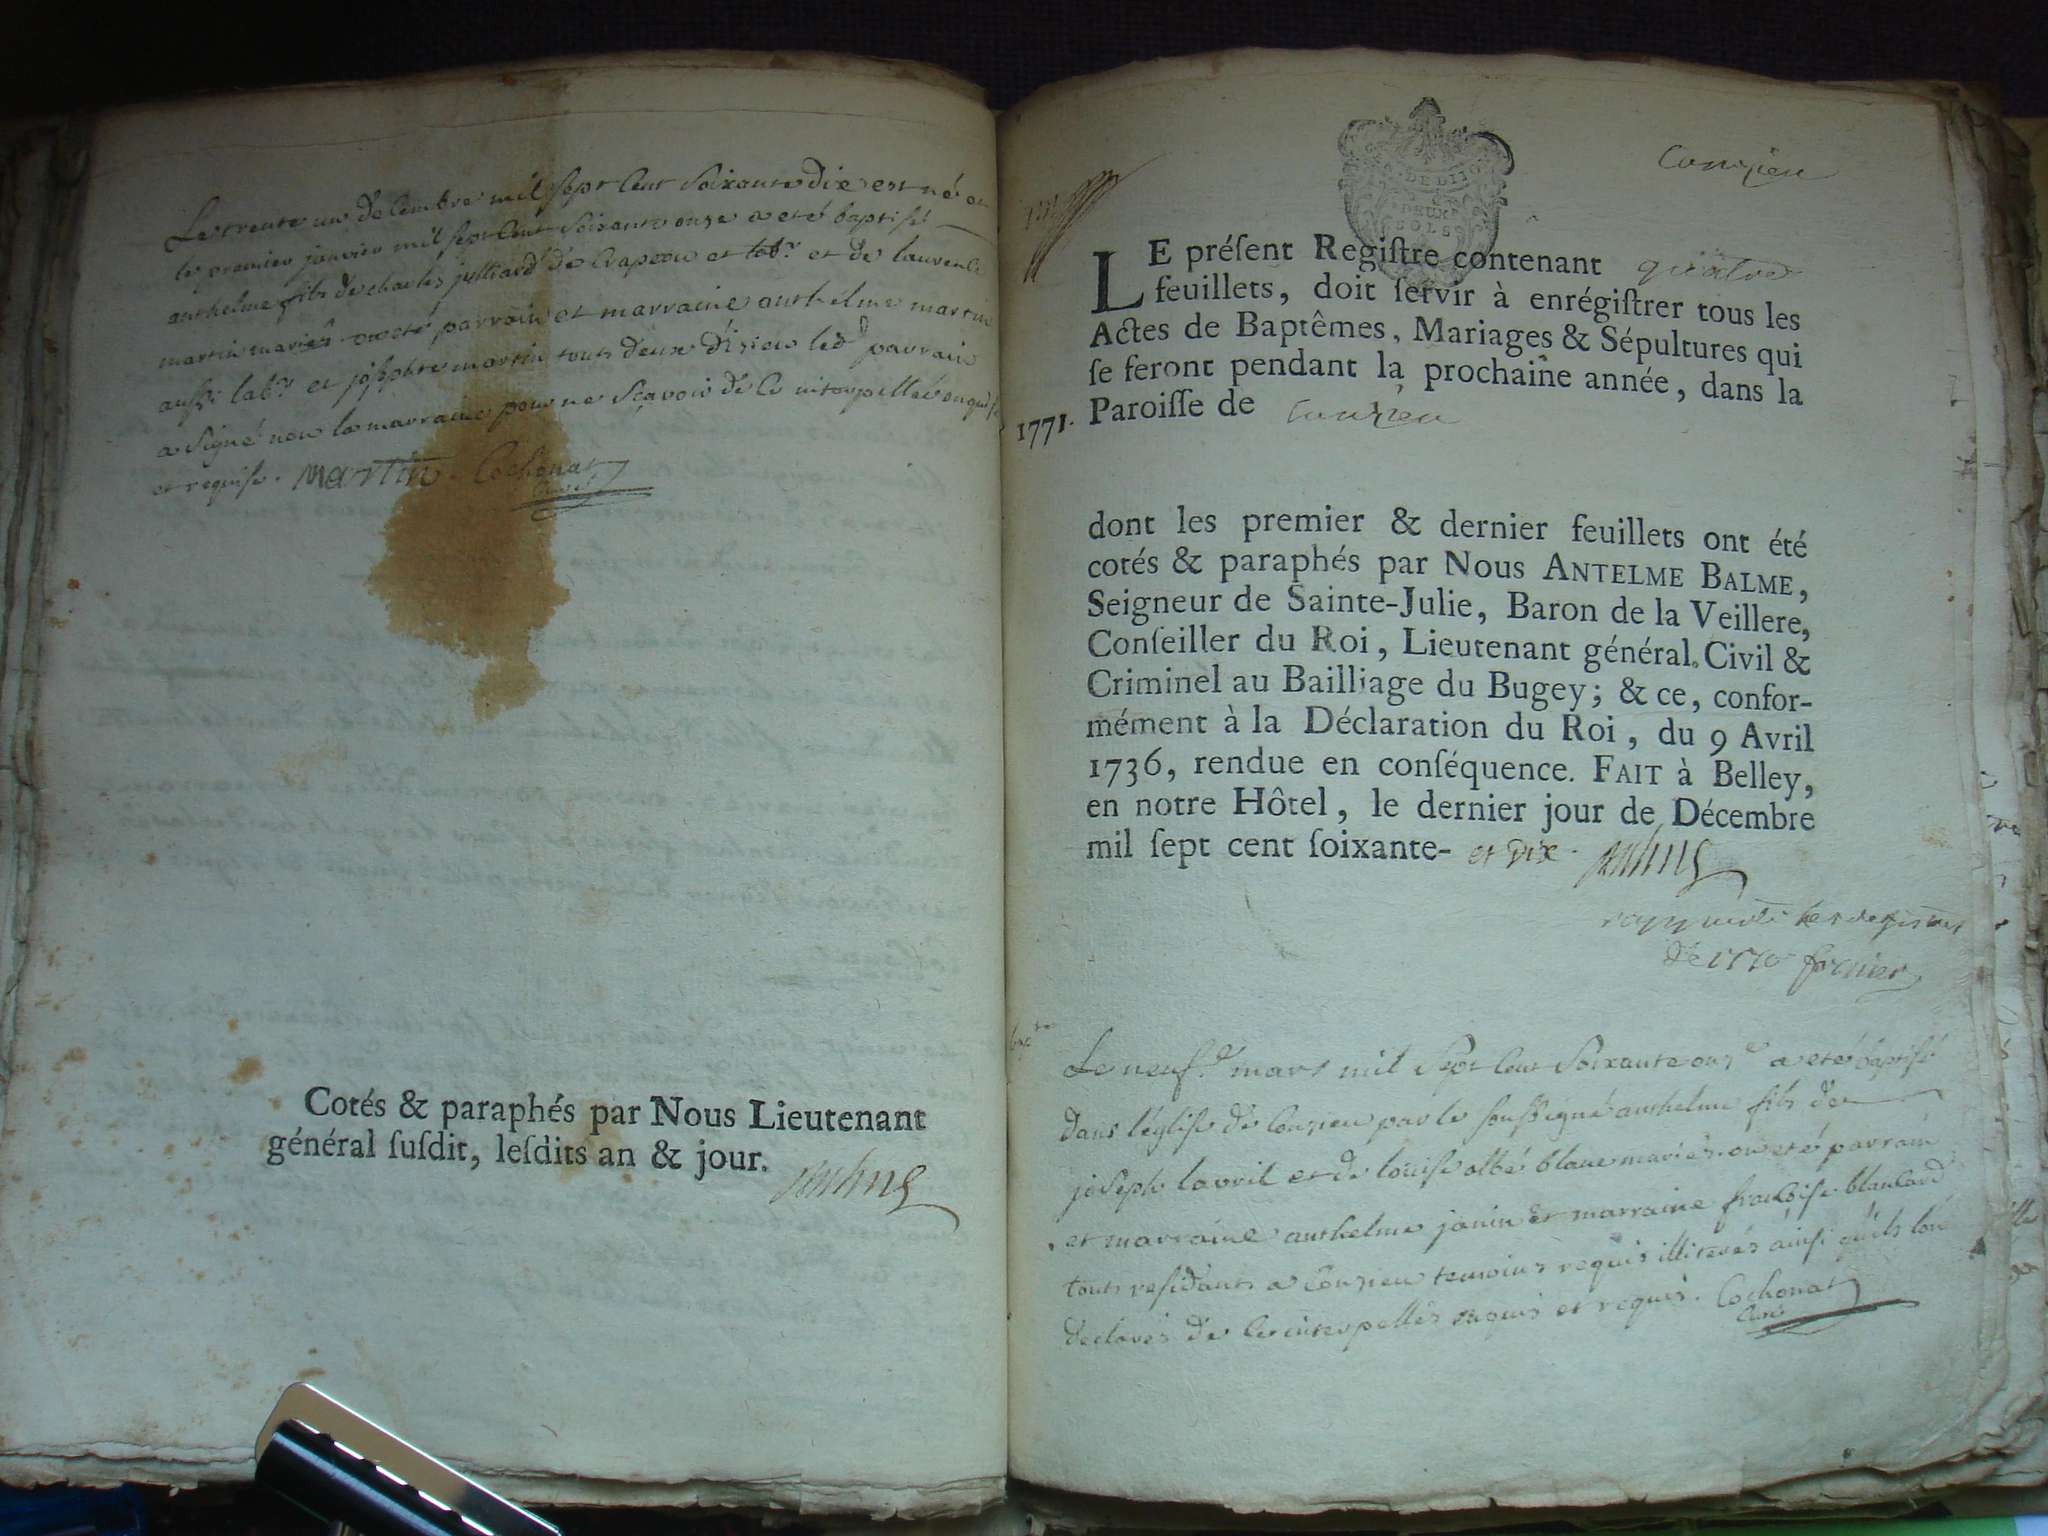 Le trente un decembre mil sept cent soixante dix est né et
le premier janvier mil sept cent soixante onze a eté baptisé
anthelme fils de charles julliard de Crapeou et lab.r et de laurence
martin mariés ont eté parrain et marraine anthelme martin
aussi lab.r et josephte martin touts deux d'isieu led parrain
a signé non la marraine pour ne sçavoir de ce interpellée enquise
et requise. Martin. Cochonat
Curé
Cotés & paraphés par Nous Lieutenant
général ſuſdit, leſdits an & jour.
DE DIJ
DEUX
SOLS
Conzieu
LE préſent Regiſtre contenant quatre
feuillets, doit ſervir à enrégiſtrer tous les
Actes de Baptêmes, Mariages & Sépultures qui
ſe feront pendant la prochaine année, dans la
1771. Paroiſſe de Conzieu
dont les premier & dernier feuillets ont été
cotés & paraphés par Nous ANTELME BALME,
Seigneur de Sainte-Julie, Baron de la Veillere,
Conſeiller du Roi, Lieutenant général Civil &
Criminel au Bailliage du Bugey; & ce, confor-
mément à la Déclaration du Roi, du 9 Avril
1736, rendue en conſéquence. FAIT à Belley,
en notre Hôtel, le dernier jour de Décembre
mil ſept cent ſoixante- et dix.
les registres
de 1770
bap.me
Le neuf.e mars mil sept cent soixante onze a eté baptisé
dans l'eglise de Conzieu par le soussigné anthelme fils de
joseph lavril et de loüise albé blanc mariés. ont eté parrain
et marraine anthelme janin et marraine francoise blanchard
touts residants a Conzieu temoins requis illiterés ainsi qu'ils l'ont
declarés de ce interpellés enquis et requis. Cochonat
Curé